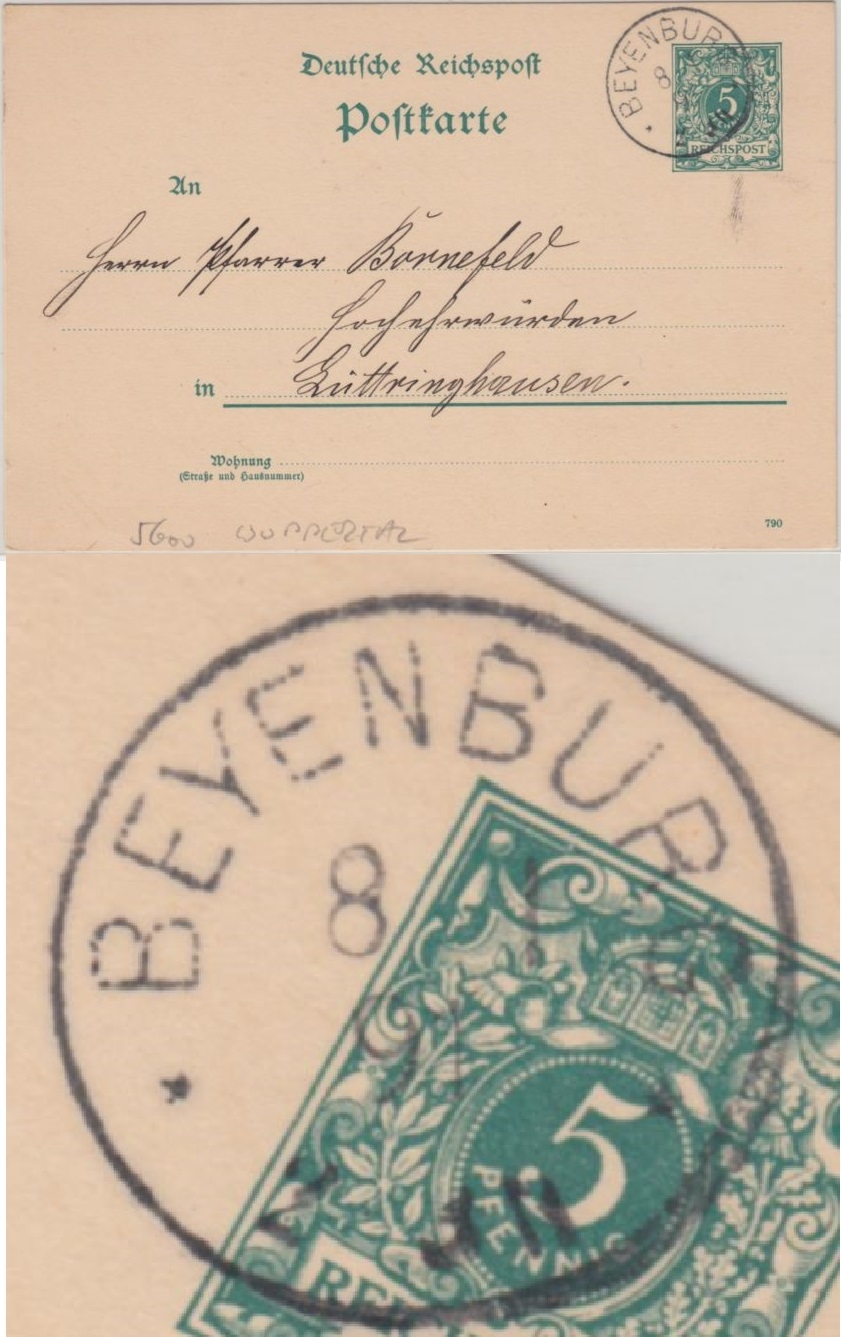 Deutsche Reichspost
Postkarte
BEYENBURG
8
5
REICHSPOST
An
Herrn Pfarrer Bornefeld
Hochehrwürden
in Lüttringhausen.
Wohnung
(Straße und Hausnummer)
790
5600 WUPPERTAL
BEYENBURG
8 1
91
5
PFENNIG